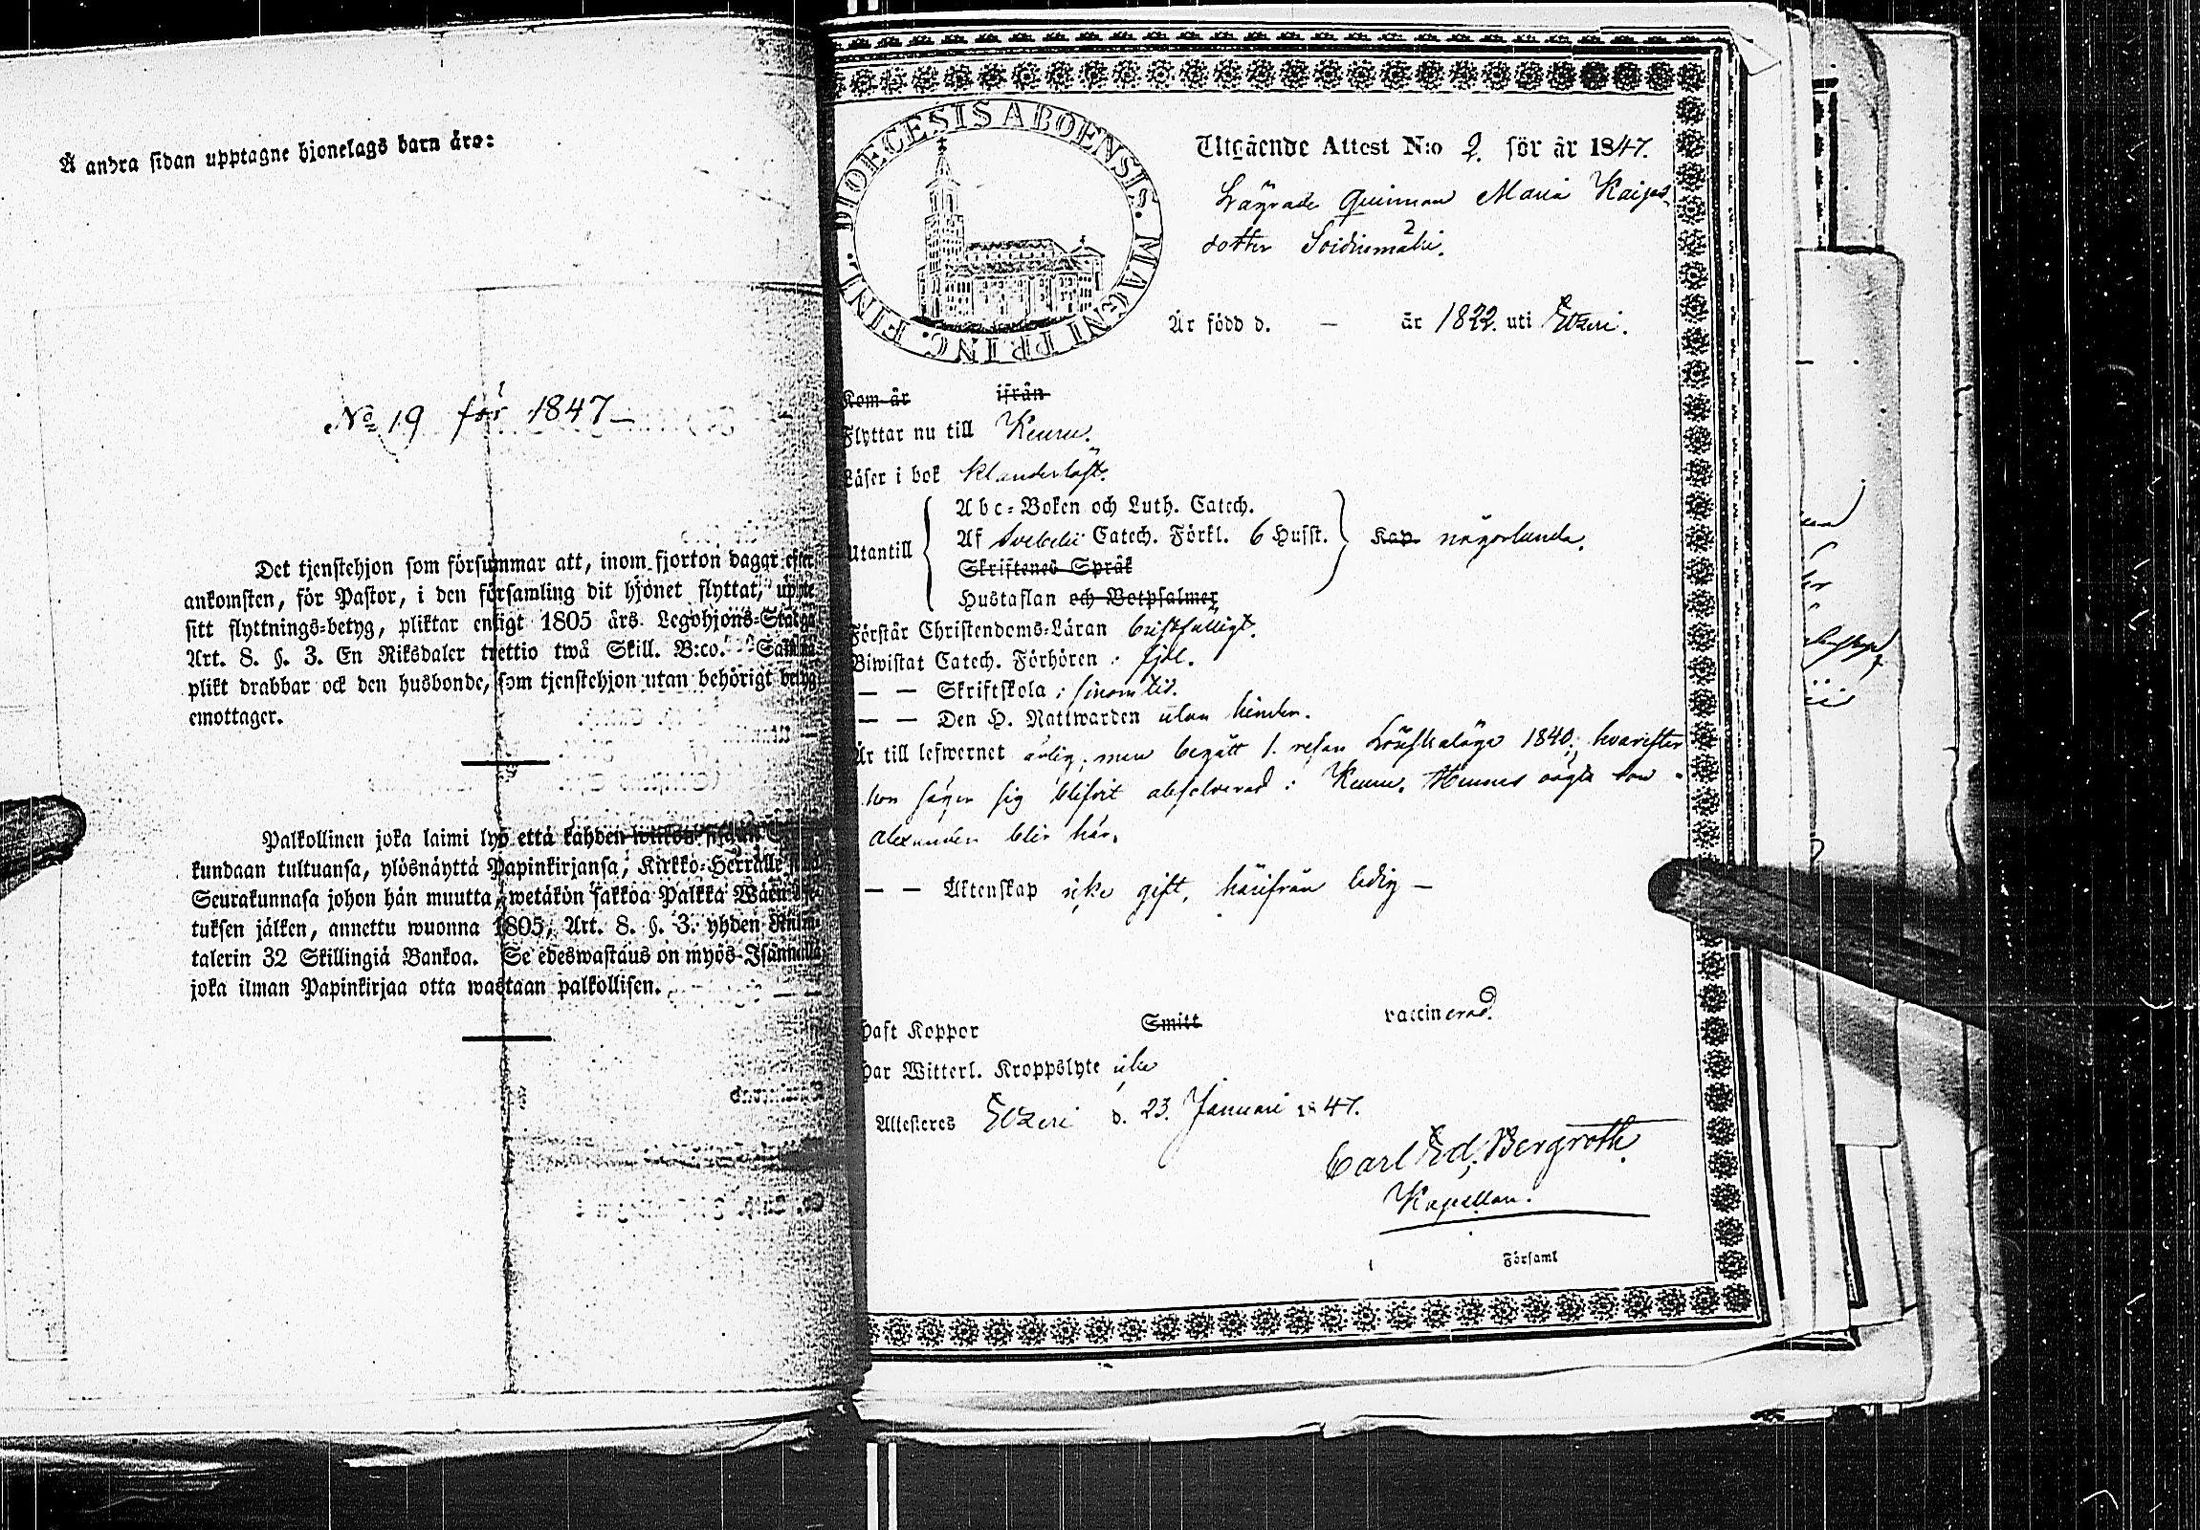 Å andra sidan upptagne hjonelags barn äro:
No 19 för 1847
Det tjenstehjon som försummar att, inom fjorton dagar efter
ankomsten, för Pastor, i den församling dit hjonet flyttat,
sitt flyttnings-betyg, pliktar enligt 1805 års Legohjons-Stadga
Art. 8. §. 3. En Riksdaler trettio twå Skill. B:co. Samma
plikt drabbar ock den husbonde, som tjenstehjon utan behörigt betyg
emottager.
Palkollinen joka laimi lyö että kahden wiikon
kundaan tultuansa, ylösnäyttä Papinkirjansa, Kirkko-Herralle
Seurakunnasa johon hän muutta, wetäkön sakkoa Palkka
tuksen jälken, annettu wuonna 1805, Art. 8. §. 3. yhden
talerin 32 Skillingiä Bankoa. Se edeswastaus on myös Isännällä
joka ilman Papinkirjaa otta wastaan palkollisen.
DIOECESIS ABOENSIS. MAGNI PRINC. FINL.
Utgående Attest N:o 2. för år 1847.
Lägrade Quinnan Maria Kaijas
dotter Soidinmäki.
Är född d. – år 1822. uti Etzeri.
Kom år ifrån
Flyttar nu till Keuru.
Läser i bok klanderlöst.
Abc-Boken och Luth. Catech.
Utantill Af Svebelii Catech. Förkl. 6 Hufst. Kap. någorlunda.
Skriftenes Språk
Hustaflan och Botpsalmer
Förstår Christendoms-Läran bristfälligt.
Biwistat Catech. Förhören : fjol.
— — Skriftskola : sinom tid.
— — Den H. Nattwarden utan hinder.
Är till lefwernet ärlig; men begått 1. resan Lönskaläge 1840; hvarefter
hon säger sig blifvit absolverad i Keuru. Hennes oägta son
Alexander blir här.
— — Äktenskap icke gift, härifrån ledig —
haft Koppor Smitt vaccinerad.
har Witterl. Kroppslyte icke
Attesteres Etzeri d. 23. Januari 1847.
Carl Ed. Bergroth.
Kapellan.
Församl